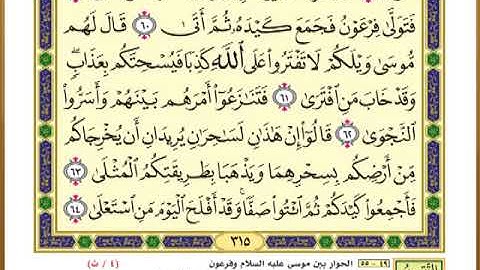 فَتَوَلَّىٰ فِرْعَوْنُ فَجَمَعَ كَيْدَهُۥ ثُمَّ أَتَىٰ ٦٠ قَالَ لَهُم
مُّوسَىٰ وَيْلَكُمْ لَا تَفْتَرُوا۟ عَلَى ٱللَّهِ كَذِبًا فَيُسْحِتَكُم بِعَذَابٍۖ
وَقَدْ خَابَ مَنِ ٱفْتَرَىٰ ٦١ فَتَنَـٰزَعُوٓا۟ أَمْرَهُم بَيْنَهُمْ وَأَسَرُّوا۟
ٱلنَّجْوَىٰ ٦٢ قَالُوٓا۟ إِنْ هَـٰذَٰنِ لَسَـٰحِرَٰنِ يُرِيدَانِ أَن يُخْرِجَاكُم
مِّنْ أَرْضِكُم بِسِحْرِهِمَا وَيَذْهَبَا بِطَرِيقَتِكُمُ ٱلْمُثْلَىٰ ٦٣
فَأَجْمِعُوا۟ كَيْدَكُمْ ثُمَّ ٱئْتُوا۟ صَفًّاۚ وَقَدْ أَفْلَحَ ٱلْيَوْمَ مَنِ ٱسْتَعْلَىٰ ٦٤
٣١٥
٤٩ - ٥٥ الحوار بين موسى عليه السلام وفرعون (٤ / ث)